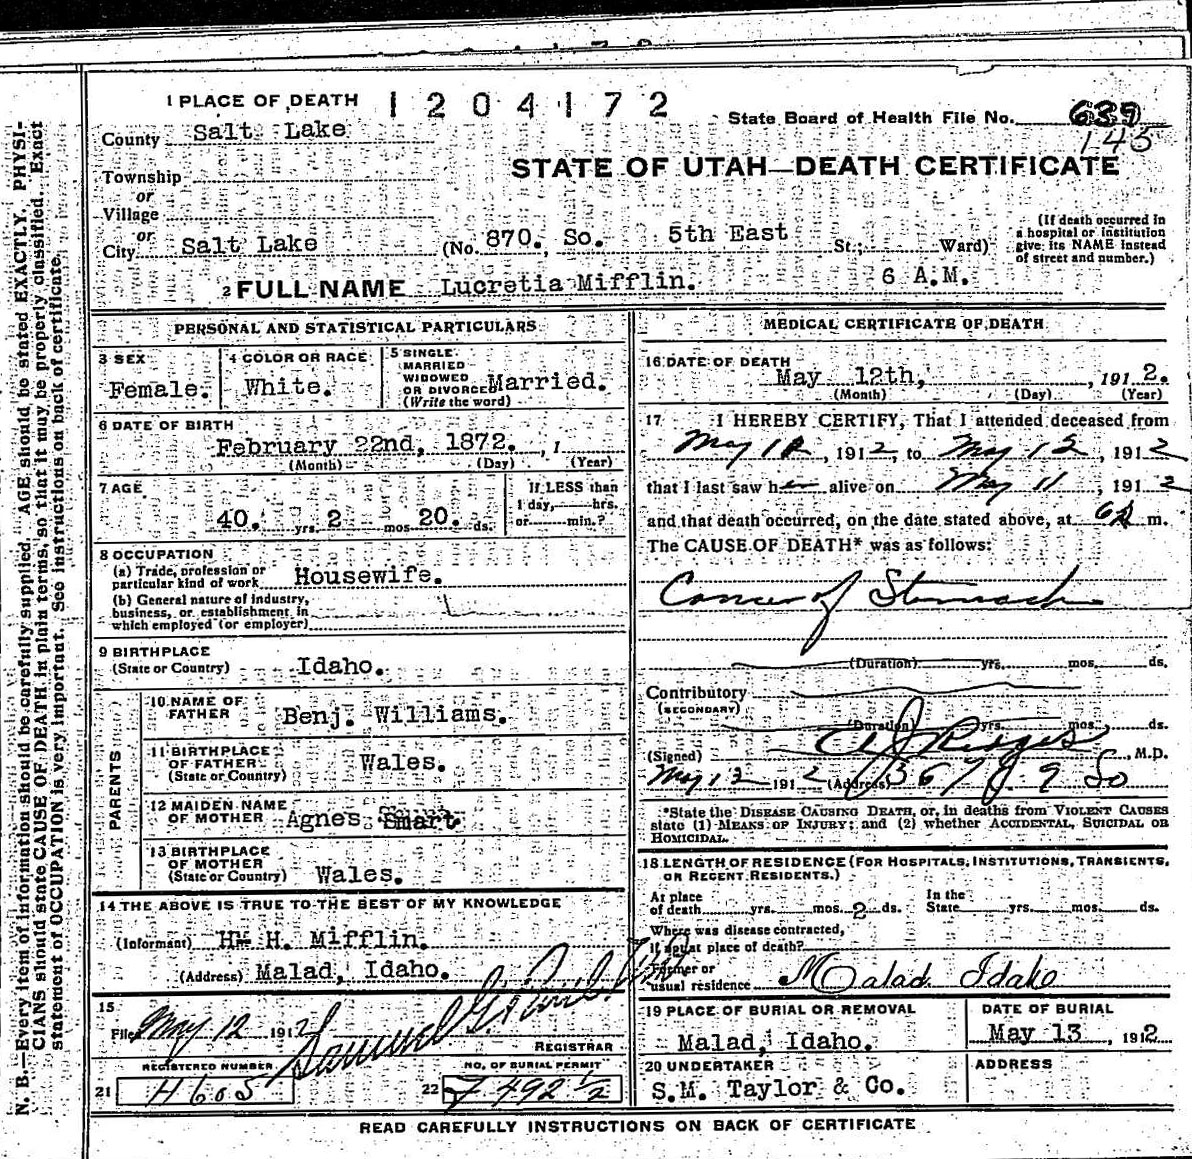 1 PLACE OF DEATH 1204172
State Board of Health File No. 639
145
County Salt Lake
STATE OF UTAH—DEATH CERTIFICATE
Township
or
Village
or
City Salt Lake (No. 870. So. 5th East St.; Ward)
(If death occurred in
a hospital or institution
give its NAME instead
of street and number.)
2 FULL NAME Lucretia Mifflin. 6 A.M.
PERSONAL AND STATISTICAL PARTICULARS
3 SEX Female.
4 COLOR OR RACE White.
5 SINGLE
MARRIED
WIDOWED
OR DIVORCED Married.
(Write the word)
6 DATE OF BIRTH
February 22nd, 1872. , 1
(Month) (Day) (Year)
7 AGE
40. yrs. 2 mos. 20. ds.
If LESS than
1 day, hrs.
or min.?
8 OCCUPATION
(a) Trade, profession or
particular kind of work Housewife.
(b) General nature of industry,
business, or establishment in
which employed (or employer)
9 BIRTHPLACE
(State or Country) Idaho.
PARENTS
10 NAME OF
FATHER Benj. Williams.
11 BIRTHPLACE
OF FATHER
(State or Country) Wales.
12 MAIDEN NAME
OF MOTHER Agnes Smart.
13 BIRTHPLACE
OF MOTHER
(State or Country) Wales.
14 THE ABOVE IS TRUE TO THE BEST OF MY KNOWLEDGE
(Informant) H. Mifflin.
(Address) Malad, Idaho.
15
Filed May 12 1912 Samuel G.
REGISTRAR
REGISTERED NUMBER
21 H 605
NO. OF BURIAL PERMIT
22 7492 1/2
MEDICAL CERTIFICATE OF DEATH
16 DATE OF DEATH
May 12th, , 191 2.
(Month) (Day) (Year)
17 I HEREBY CERTIFY, That I attended deceased from
May , 191 2, to May 12, 191 2
that I last saw her alive on May 11, 191 2
and that death occurred, on the date stated above, at 6 A m.
The CAUSE OF DEATH* was as follows:
Cancer of Stomach
(Duration) yrs. mos. ds.
Contributory
(SECONDARY)
(Duration) yrs. mos. ds.
(Signed) Ridges, M.D.
May 13 191 2 (Address) 367 9 So
*State the DISEASE CAUSING DEATH, or, in deaths from VIOLENT CAUSES
state (1) MEANS OF INJURY; and (2) whether ACCIDENTAL, SUICIDAL OR
HOMICIDAL.
18 LENGTH OF RESIDENCE (FOR HOSPITALS, INSTITUTIONS, TRANSIENTS,
OR RECENT RESIDENTS.)
At place
of death yrs. mos. 2 ds.
In the
State yrs. mos. ds.
Where was disease contracted,
if not at place of death?
Former or
usual residence Malad Idaho
19 PLACE OF BURIAL OR REMOVAL
Malad, Idaho.
DATE OF BURIAL
May 13, 191 2
20 UNDERTAKER
S.M. Taylor & Co.
ADDRESS
READ CAREFULLY INSTRUCTIONS ON BACK OF CERTIFICATE
N. B.—Every item of information should be carefully supplied. AGE should be stated EXACTLY. PHYSI-
CIANS should state CAUSE OF DEATH in plain terms, so that it may be properly classified. Exact
statement of OCCUPATION is very important. See instructions on back of certificate.